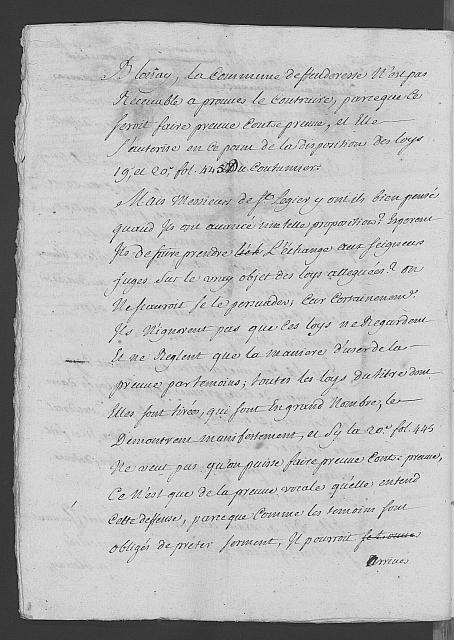 Blonay, la Commune d'effuldoresse N'est pas
Recevable a prouver le contraire, parceque ce
seroit faire preuve contre preuve, et Elle
S'autorise en ce point de la disposition des loys
19e et 20e fol. 445 Du Coutumier.
Mais Messieurs de St. Legier y ont ils bien pensé
quand Ils ont avancé une telle proposition? Esperent
Ils de faire prendre l'échange aux seigneurs
juges sur le vray objet des loys alleguées? on
Ne sçauroit se le persuader, Car Certainement
Ils N'ignorent pas que ces loys ne Regardent
Et ne Reglent que la maniere d'user de la
preuve par temoins; toutes les loys du titre dont
Elles sont tirées, qui sont En grand Nombre, le
Demontrent manifestement, et Sy la 20e fol. 445
Ne veut pas qu'on puisse faire preuve Contre preuve,
Ce N'est que de la preuve vocale qu'elle entend
Cette deffense, parceque comme les temoins sont
obligés de préter serment, Il pourroit se trouver
arrive